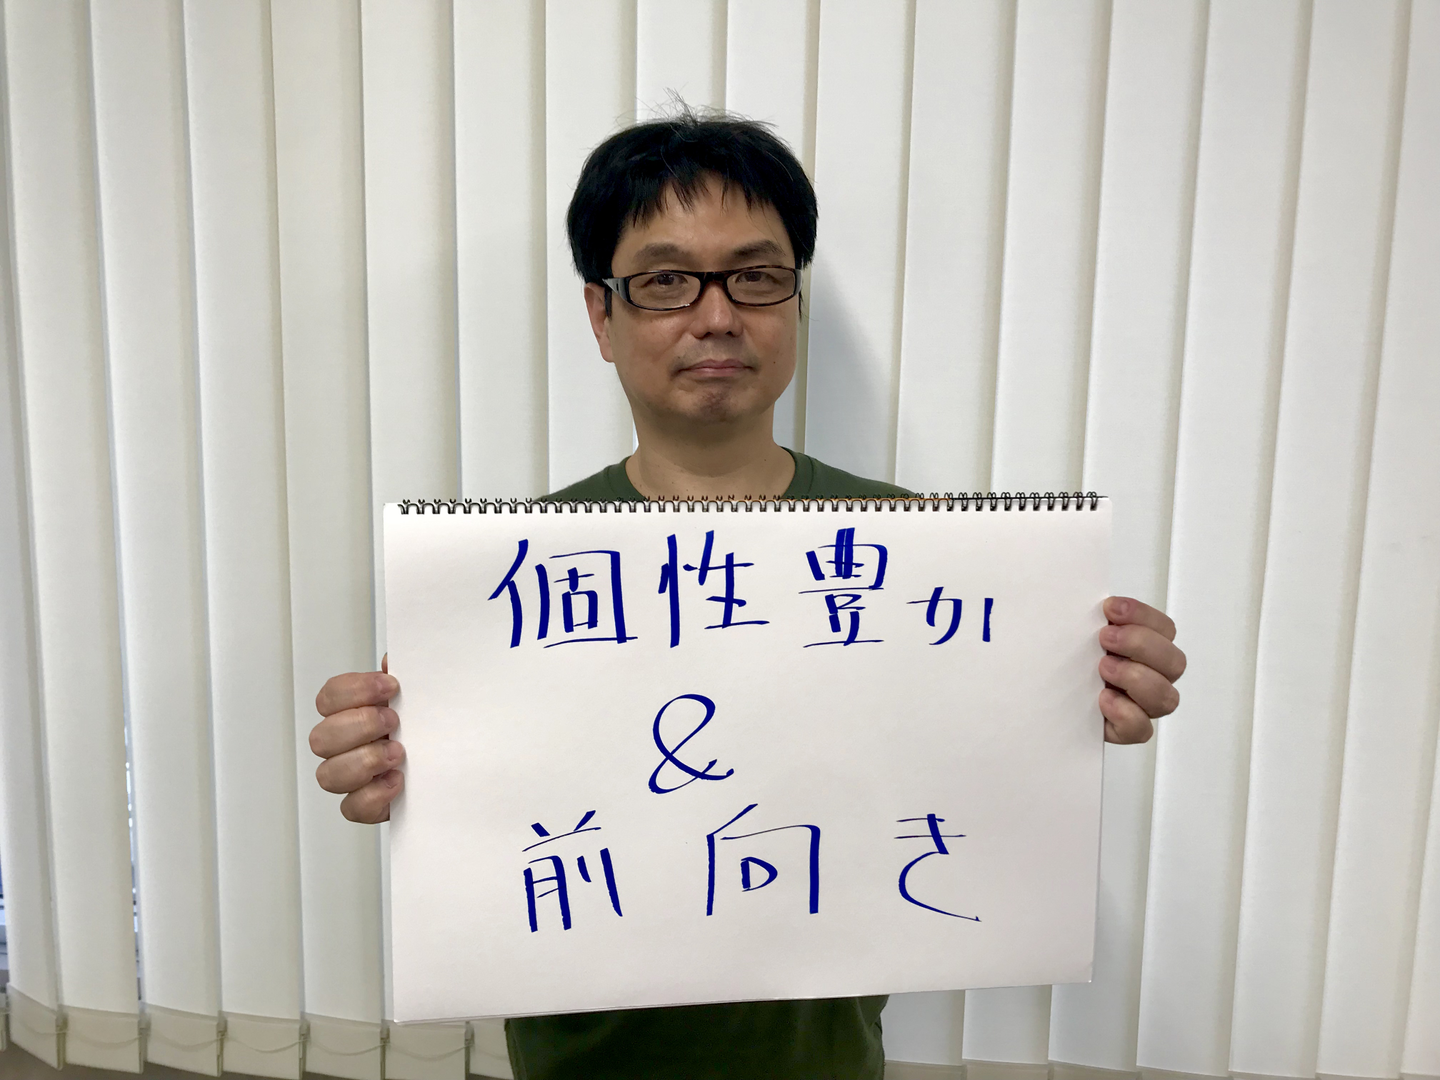 個性豊か
&
前向き